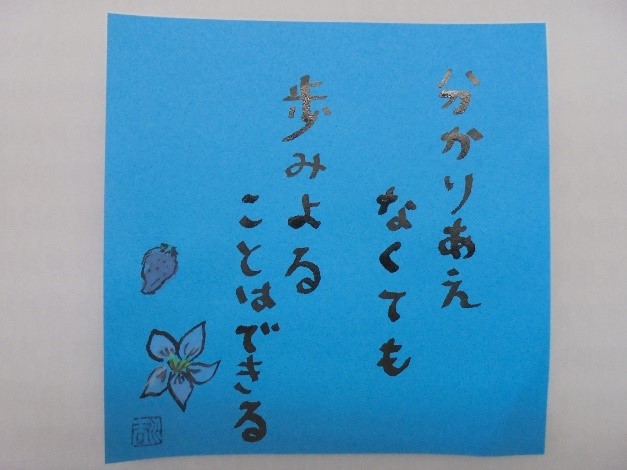 分かりあえ
なくても
歩みよる
ことはできる